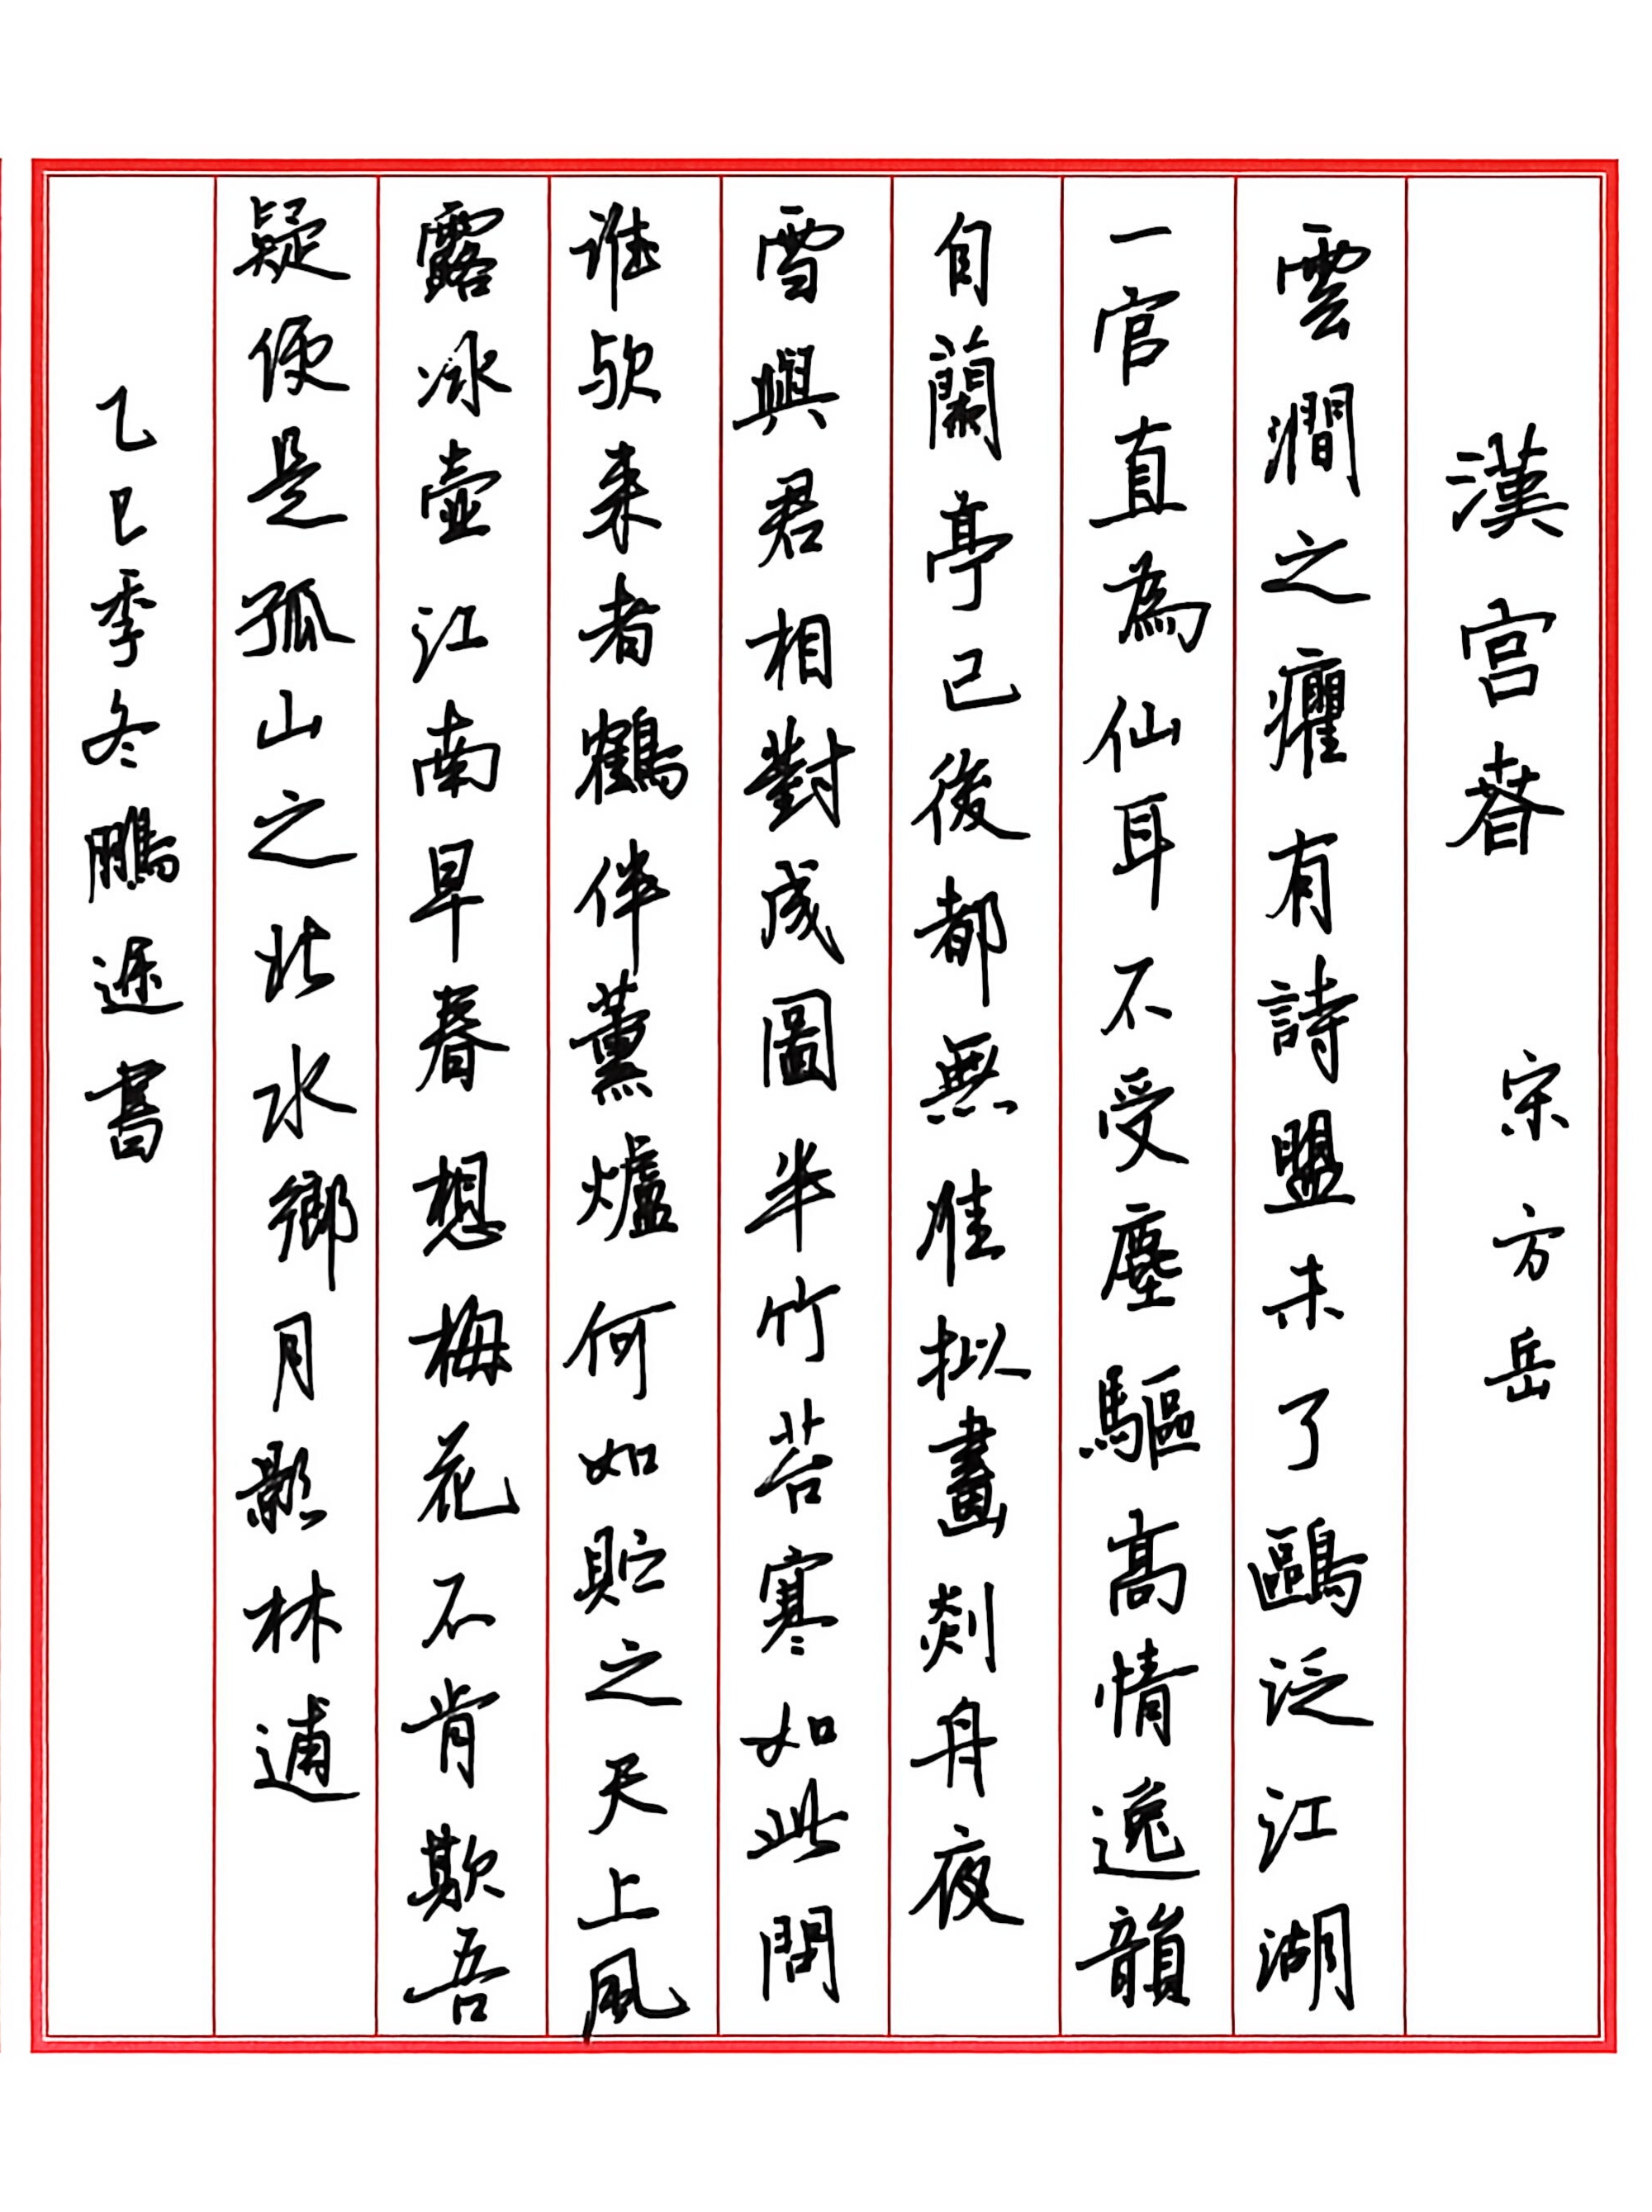 漢宫春 宋方岳
雲澗之癯有詩盟未了鷗泛江湖
一官直為仙耳不受塵驅高情逸韻
自蘭亭已後都無准拟畫剡舟夜
雪與君相對成圖半竹苦寒如此問
谁欤来者鶴伴薰爐何如貯之天上風
露冰壺江南早春想梅花不肯欺吾
疑便是孤山之北水鄉月影林逋
乙巳季冬鵬遜書